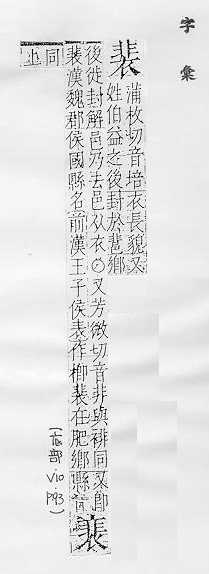 字彙
裴
蒲枚切音培衣長貌又
姓伯益之後封於䔹鄉
後徙封解邑乃去邑从衣○又芳微切音非與裶同又即
裴漢魏郡侯國縣名前漢王子侯表作𨛬裴在肥鄉縣前
裵
同
上
(衣部.V10
P93)